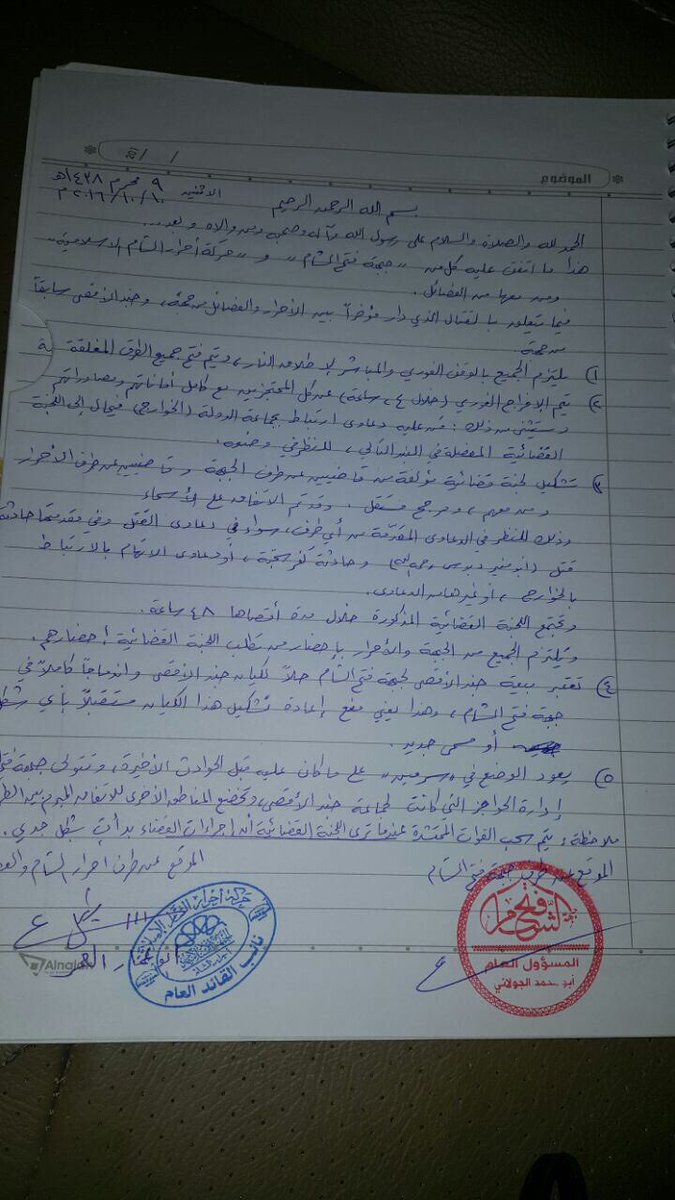 الموضوع
/ /
الاثنين ٩ محرم ١٤٣٨هـ
٢٠١٦/١٠/١٠ م
بسم الله الرحمن الرحيم
الحمد لله والصلاة والسلام على رسول الله وآله وصحبه ومن والاه وبعد...
هذا ما اتفق عليه كل من "جبهة فتح الشام" و "حركة أحرار الشام الإسلامية"
ومن معها من الفصائل.
فيما يتعلق بالقتال الذي دار مؤخراً بين الأحرار والفصائل من جهة، وجند الأقصى سابقاً
من جهة
١) يلتزم الجميع بالوقف الفوري والمباشر لإطلاق النار، ويتم فتح جميع الطرق المغلقة
٢) يتم الإفراج الفوري (خلال ٢٤ ساعة) عن كل المحتجزين مع كامل أماناتهم ومصادراتهم
ويستثنى من ذلك: من عليه دعاوى ارتباط بجماعة الدولة (الخوارج) فيحال إلى اللجنة
القضائية المفصلة في البند التالي، للنظر في وضعه.
٣) تشكيل لجنة قضائية مؤلفة من قاضيين عن طرف الجبهة وقاضيين عن طرف الأحرار
ومن معهم، ومرجح مستقل. وقد تم الاتفاق على الأسماء
وذلك للنظر في الدعاوى المقدمة من أي طرف، سواء في دعاوى القتل وفي مقدمتها حادثة
قتل (أبو منير دبوس رحمه الله) وحادثة كفرسجنة، أو دعاوى الاتهام بالارتباط
بالخوارج، أو غيرها من الدعاوى.
وتجتمع اللجنة القضائية المذكورة خلال مدة أقصاها ٤٨ ساعة.
ويلتزم الجميع من الجبهة والأحرار بإحضار من تطلب اللجنة القضائية إحضارهم.
٤) تعتبر بيعة جند الأقصى لجبهة فتح الشام حلاً لكيان جند الأقصى واندماجاً كاملاً في
جبهة فتح الشام، وهذا يعني منع إعادة تشكيل هذا الكيان مستقبلاً بأي شكل
أو مسمى جديد.
٥) يعود الوضع في "سرمين" على ما كان عليه قبل الحوادث الأخيرة، وتتولى جبهة فتح
إدارة الحواجز التي كانت لجماعة جند الأقصى، وتخضع المناطق الأخرى للاتفاق المبرم بين الط
ملاحظة: يتم سحب القوات المحتشدة عندما ترى اللجنة القضائية أن إجراءات القضاء بدأت بشكل جدي.
الموقع عن طرف جبهة فتح الشام
الموقع عن طرف أحرار الشام والفص
جبهة
فتح الشام
المسؤول العام
ابو محمد الجولاني
حركة أحرار الشام الإسلامية
نائب القائد العام
Alnajah